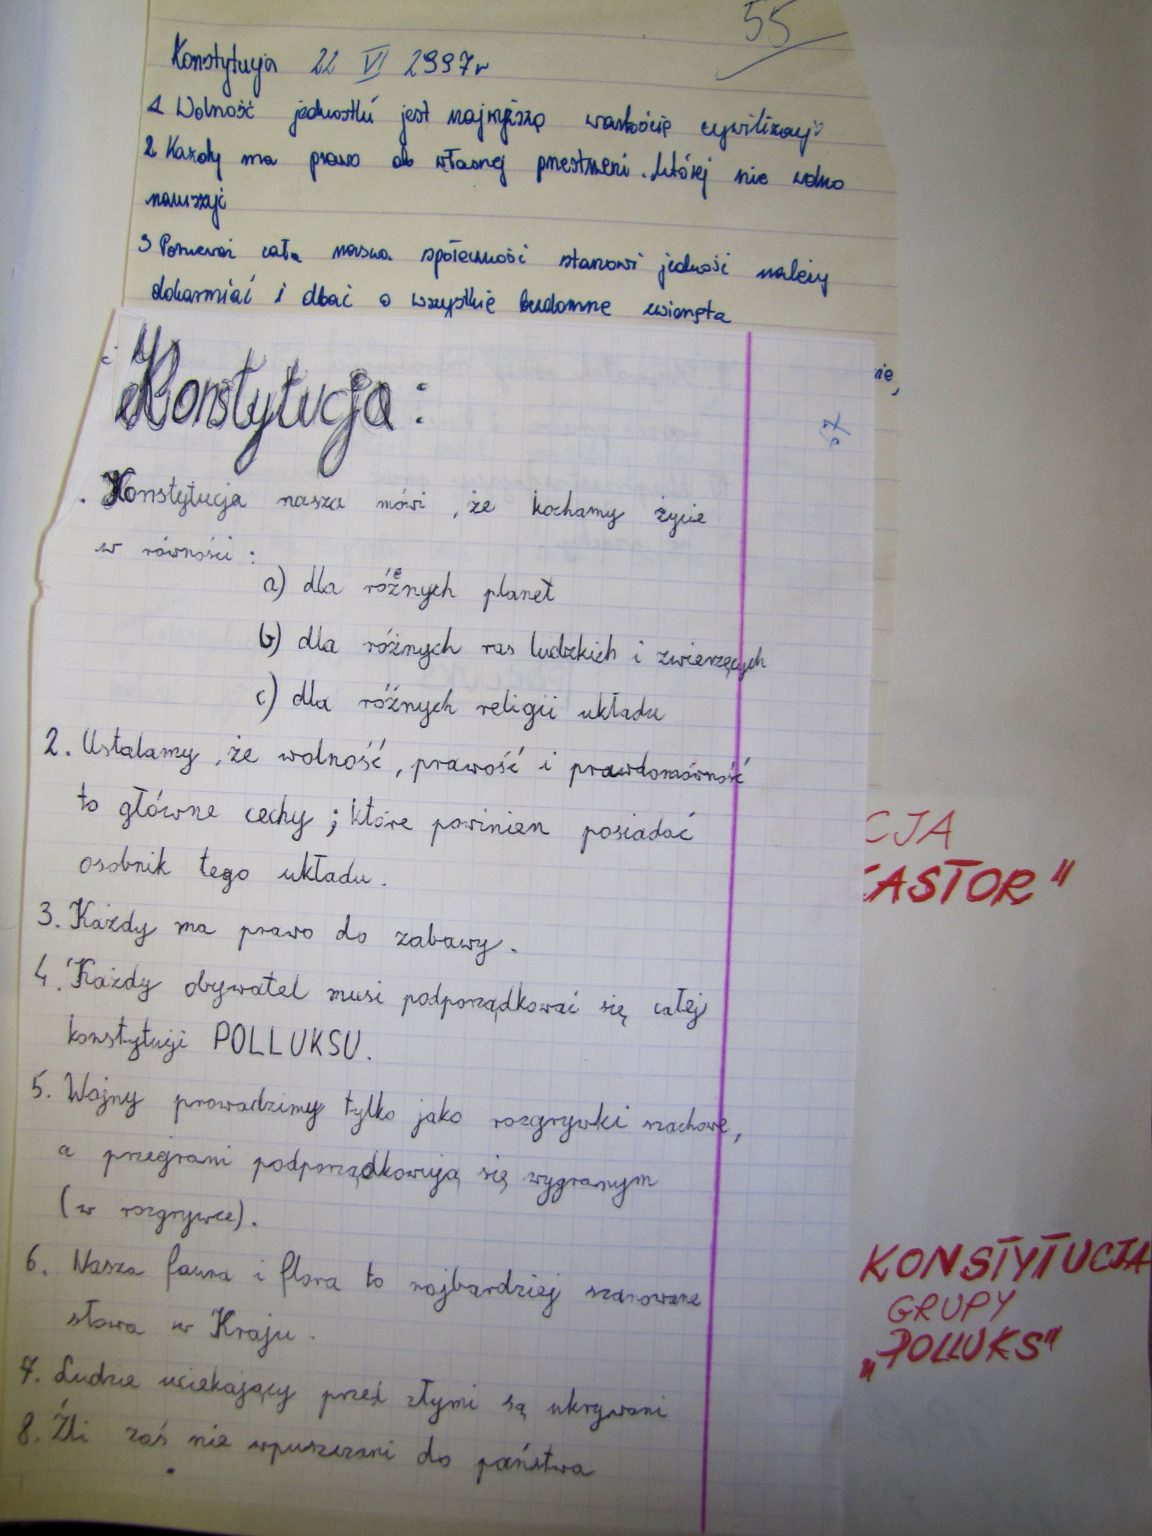 55
Konstytucja 22 VI 2997r
1 Wolność jednostki jest najwyższą wartością cywilizacji
2 Każdy ma prawo do własnej przestrzeni. której nie wolno
naruszyć
3 Ponieważ cała nasza społeczność stanowi jedność należy
dokarmiać i dbać o wszystkie bezdomne zwierzęta
nie,
Konstytucja:
57
. Konstytucja nasza mówi, że kochamy życie
w równości:
a) dla różnych planet
b) dla różnych ras ludzkich i zwierzęcych
c) dla różnych religii układu
2. Ustalamy, że wolność, prawość i prawdomówność
to główne cechy; które powinien posiadać
osobnik tego układu.
3. Każdy ma prawo do zabawy.
4. Każdy obywatel musi podporządkować się całej
konstytucji POLLUKSU.
5. Wojny prowadzimy tylko jako rozgrywki szachowe,
a przegrani podporządkowują się wygranym
(w rozgrywce).
6. Nasza fauna i flora to najbardziej szanowane
słowa w Kraju.
7. Ludzie uciekający przed złymi są ukrywani
8. Źli zaś nie wpuszczani do państwa
CJA
KASTOR"
KONSTYTUCJA
GRUPY
„POLLUKS"